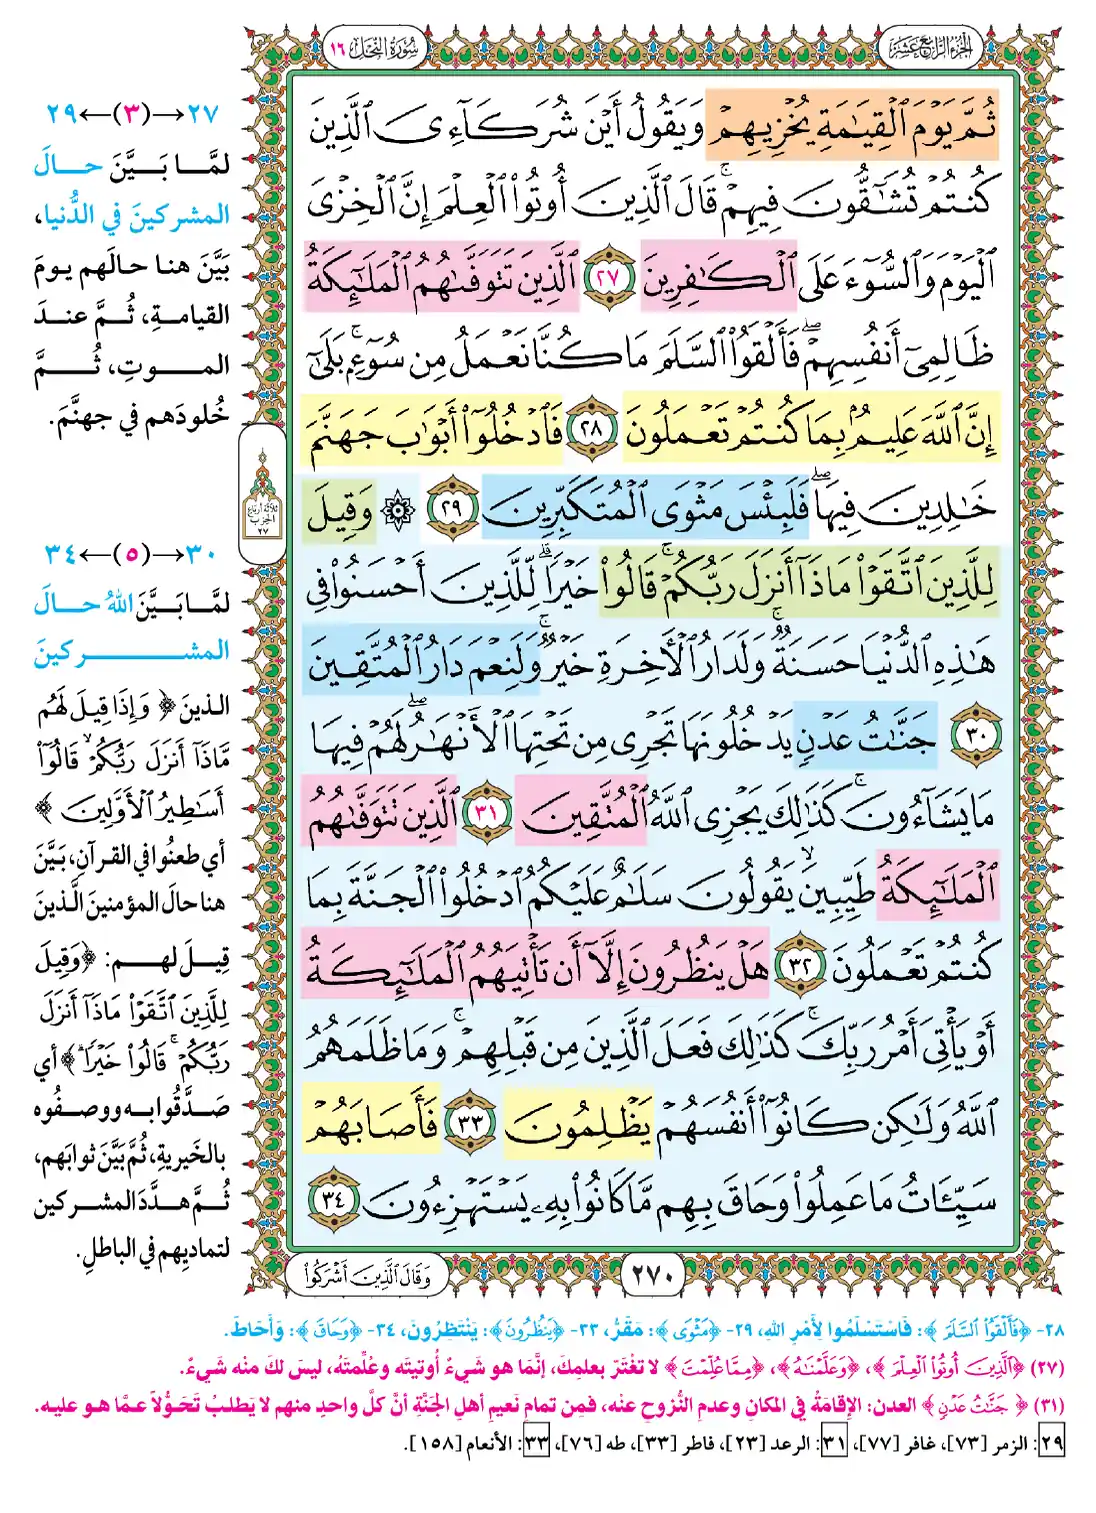 الجزء الرابع عشر
سورة النحل ١٦
ثُمَّ يَوْمَ ٱلْقِيَٰمَةِ يُخْزِيهِمْ وَيَقُولُ أَيْنَ شُرَكَآءِىَ ٱلَّذِينَ
كُنتُمْ تُشَٰٓقُّونَ فِيهِمْ ۚ قَالَ ٱلَّذِينَ أُوتُوا۟ ٱلْعِلْمَ إِنَّ ٱلْخِزْىَ
ٱلْيَوْمَ وَٱلسُّوٓءَ عَلَى ٱلْكَٰفِرِينَ ٢٧ ٱلَّذِينَ تَتَوَفَّىٰهُمُ ٱلْمَلَٰٓئِكَةُ
ظَالِمِىٓ أَنفُسِهِمْ ۖ فَأَلْقَوُا۟ ٱلسَّلَمَ مَا كُنَّا نَعْمَلُ مِن سُوٓءٍۭ ۚ بَلَىٰٓ
إِنَّ ٱللَّهَ عَلِيمٌۢ بِمَا كُنتُمْ تَعْمَلُونَ ٢٨ فَٱدْخُلُوٓا۟ أَبْوَٰبَ جَهَنَّمَ
خَٰلِدِينَ فِيهَا ۖ فَلَبِئْسَ مَثْوَى ٱلْمُتَكَبِّرِينَ ٢٩ ۞ وَقِيلَ
لِلَّذِينَ ٱتَّقَوْا۟ مَاذَآ أَنزَلَ رَبُّكُمْ ۚ قَالُوا۟ خَيْرًا ۗ لِّلَّذِينَ أَحْسَنُوا۟ فِى
هَٰذِهِ ٱلدُّنْيَا حَسَنَةٌ ۚ وَلَدَارُ ٱلْءَاخِرَةِ خَيْرٌ ۚ وَلَنِعْمَ دَارُ ٱلْمُتَّقِينَ
٣٠ جَنَّٰتُ عَدْنٍ يَدْخُلُونَهَا تَجْرِى مِن تَحْتِهَا ٱلْأَنْهَٰرُ ۖ لَهُمْ فِيهَا
مَا يَشَآءُونَ ۚ كَذَٰلِكَ يَجْزِى ٱللَّهُ ٱلْمُتَّقِينَ ٣١ ٱلَّذِينَ تَتَوَفَّىٰهُمُ
ٱلْمَلَٰٓئِكَةُ طَيِّبِينَ ۙ يَقُولُونَ سَلَٰمٌ عَلَيْكُمُ ٱدْخُلُوا۟ ٱلْجَنَّةَ بِمَا
كُنتُمْ تَعْمَلُونَ ٣٢ هَلْ يَنظُرُونَ إِلَّآ أَن تَأْتِيَهُمُ ٱلْمَلَٰٓئِكَةُ
أَوْ يَأْتِىَ أَمْرُ رَبِّكَ ۚ كَذَٰلِكَ فَعَلَ ٱلَّذِينَ مِن قَبْلِهِمْ ۚ وَمَا ظَلَمَهُمُ
ٱللَّهُ وَلَٰكِن كَانُوٓا۟ أَنفُسَهُمْ يَظْلِمُونَ ٣٣ فَأَصَابَهُمْ
سَيِّـَٔاتُ مَا عَمِلُوا۟ وَحَاقَ بِهِم مَّا كَانُوا۟ بِهِۦ يَسْتَهْزِءُونَ ٣٤
٢٧→(٣)←٢٩
لمَّا بَيَّنَ حالَ
المشركينَ في الدُّنيا،
بَيَّنَ هنا حالَهم يومَ
القيامةِ، ثُمَّ عندَ
الموتِ، ثُمَّ
خُلودَهم في جهنَّمَ.
ثلاثة أرباع
الحزب
٢٧
٣٠→(٥)←٣٤
لمَّا بَيَّنَ اللهُ حالَ
المشركينَ
الذينَ ﴿وَإِذَا قِيلَ لَهُم
مَّاذَآ أَنزَلَ رَبُّكُمْ ۙ قَالُوٓا۟
أَسَٰطِيرُ ٱلْأَوَّلِينَ﴾
أي طعنُوا في القرآنِ، بَيَّنَ
هنا حالَ المؤمنينَ الَّذينَ
قِيلَ لهم: ﴿وَقِيلَ
لِلَّذِينَ ٱتَّقَوْا۟ مَاذَآ أَنزَلَ
رَبُّكُمْ ۚ قَالُوا۟ خَيْرًا ۗ﴾ أي
صَدَّقُوا به ووصفُوه
بالخَيريةِ، ثُمَّ بَيَّنَ ثوابَهم،
ثُمَّ هدَّدَ المشركين
لتماديهم في الباطلِ.
وَقَالَ ٱلَّذِينَ أَشْرَكُوا۟
٢٧٠
٢٨- ﴿فَأَلْقَوُا۟ ٱلسَّلَمَ﴾: فَاسْتَسْلَمُوا لِأَمْرِ اللهِ، ٢٩- ﴿مَثْوَى﴾: مَقَرُّ، ٣٣- ﴿يَنظُرُونَ﴾: يَنْتَظِرُونَ، ٣٤- ﴿وَحَاقَ﴾: وَأَحَاطَ.
(٢٧) ﴿ٱلَّذِينَ أُوتُوا۟ ٱلْعِلْمَ﴾، ﴿وَعَلَّمْنَٰهُ﴾، ﴿مِمَّا عُلِّمْتَ﴾ لا تغْتَرّ بعلمِكَ، إنَّما هو شيءٌ أُوتيتَه وعُلِّمتَه، ليسَ لكَ منه شيءٌ.
(٣١) ﴿جَنَّٰتُ عَدْنٍ﴾ العدن: الإقامَةُ في المكانِ وعدم النُّزوحِ عنه، فمِن تمامِ نَعيمِ أهلِ الجَنَّةِ أنَّ كلَّ واحدٍ منهم لا يَطلبُ تَحَوُّلًا عمَّا هو عليه.
٢٩: الزمر [٧٣]، غافر [٧٧]، ٣١: الرعد [٢٣]، فاطر [٣٣]، طه [٧٦]، ٣٣: الأنعام [١٥٨].